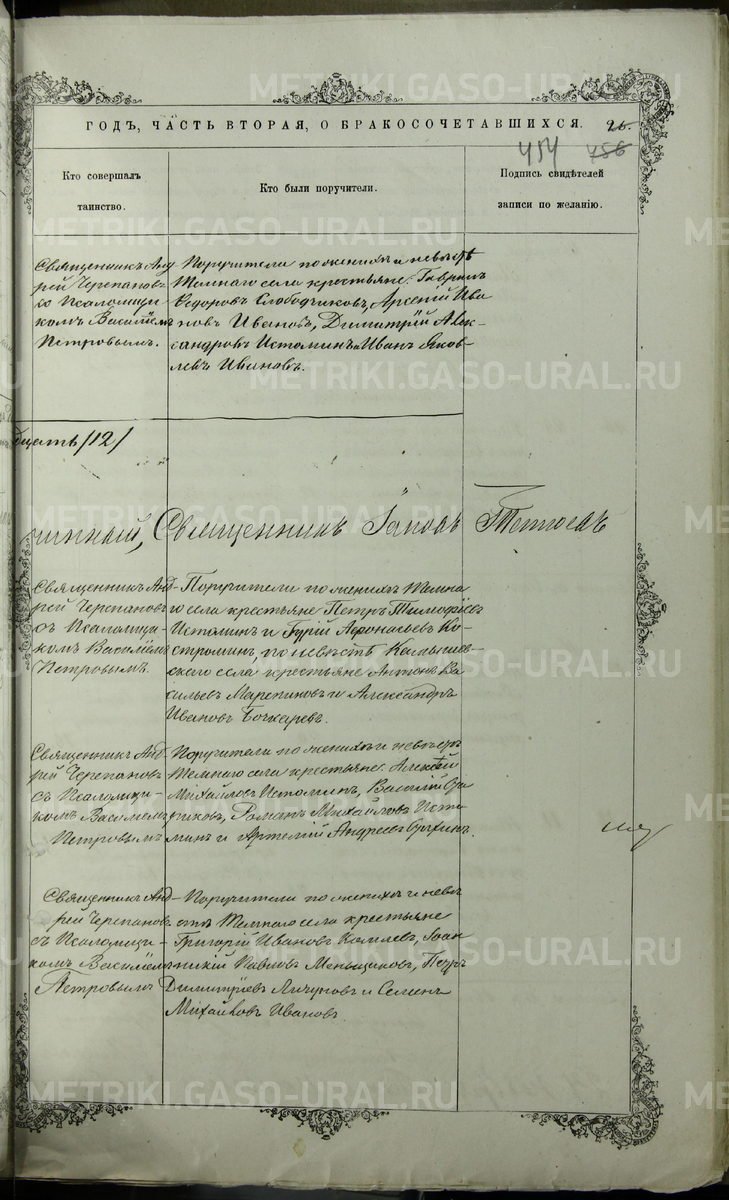 METRIKI.GASO-URAL.RU
ГОДЪ, ЧАСТЬ ВТОРАЯ, О БРАКОСОЧЕТАВШИХСЯ. 26.
454 756
Кто совершалъ таинство.
Кто были поручители.
Подпись свидѣтелей записи по желанію.
Священникъ Анд-
рей Черепановъ
со Псаломщи-
комъ Василіемъ
Петровымъ.
Поручители по женихѣ и невѣстѣ
села крестьяне: Гавріилъ
Ѳедоровъ Слободчиковъ, Арсеній Ива-
новъ Ивановъ, Димитрій Алек-
сандровъ Истоминъ и Иванъ Яков-
левъ Ивановъ.
/12/
Священникъ Іаковъ
Священникъ Анд-
рей Черепановъ
съ Псаломщи-
комъ Василіемъ
Петровымъ.
Поручители по женихѣ Темна-
го села крестьяне Петръ Тимофѣевъ
Истоминъ и Гурій Афонасьевъ Ко-
строминъ, по невѣстѣ
скаго села крестьяне Антонъ Ва-
сильевъ и Александръ
Ивановъ Бочкаревъ.
Священникъ Анд-
рей Черепановъ
съ Псаломщи-
комъ Василіемъ
Петровымъ
Поручители по женихѣ и невѣстѣ
Темнаго села крестьяне: Алексѣй
Михайловъ Истоминъ, Василій
Романъ Михайловъ Исто-
минъ и Артемій Андреевъ
Священникъ Анд-
рей Черепановъ
съ Псаломщи-
комъ Василіемъ
Петровымъ
Поручители по женихѣ и невѣ-
стѣ Темнаго села крестьяне
Григорій Ивановъ Іоан-
никій Павловъ Меньщиковъ, Петръ
Димитріевъ и Семенъ
Михайловъ Ивановъ